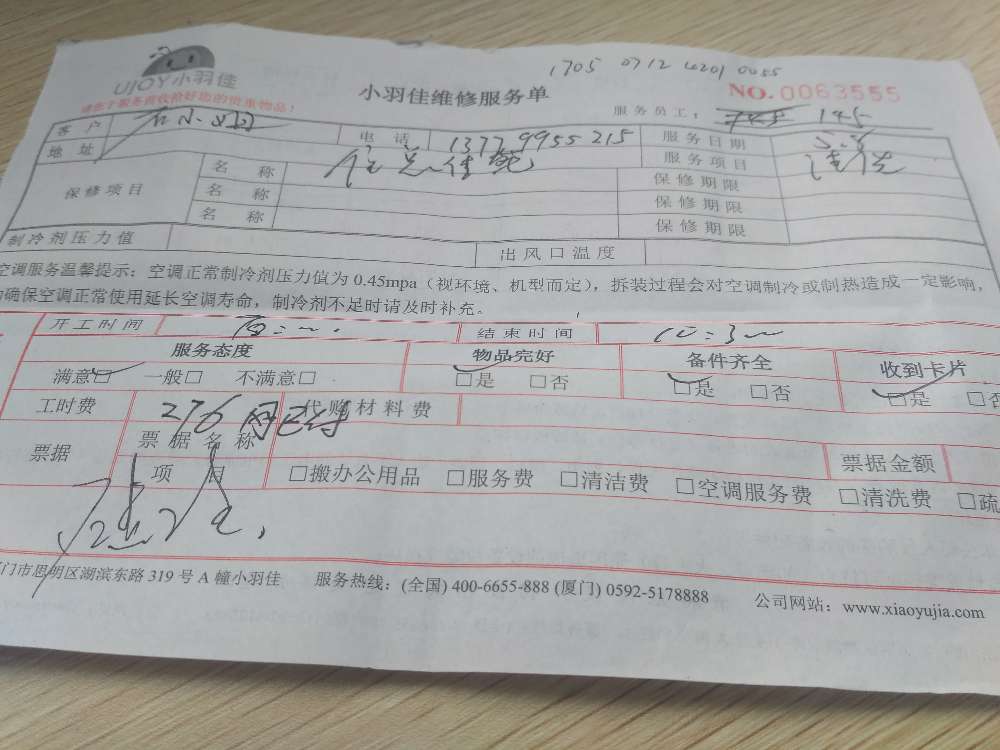 1705 0712 4201 0055
UJOY小羽佳
小羽佳维修服务单
NO.0063555
请在下服务前收拾好您的贵重物品!
服务员工: 145
客户 石小羽
电话 13779955215
服务日期 5.8
地址
服务项目
保修项目
名称 保修期限
名称 保修期限
名称 保修期限
制冷剂压力值 出风口温度
空调服务温馨提示:空调正常制冷剂压力值为 0.45mpa(视环境、机型而定),拆装过程会对空调制冷或制热造成一定影响,
确保空调正常使用延长空调寿命,制冷剂不足时请及时补充。
开工时间 结束时间
服务态度 物品完好 备件齐全 收到卡片
满意□ 一般□ 不满意□ □是 □否 □是 □否 □是 □否
工时费 276 网已付 代购材料费
票据 票据名称 票据金额
项目 □搬办公用品 □服务费 □清洁费 □空调服务费 □清洗费 □疏
门市思明区湖滨东路 319 号 A 幢小羽佳 服务热线:(全国) 400-6655-888 (厦门) 0592-5178888 公司网站:www.xiaoyujia.com